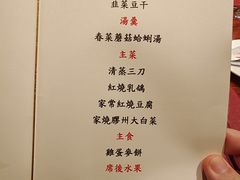 韭菜豆干
湯羹
春菜蘑菇蛤蜊湯
主菜
清蒸三刀
紅燒乳鴿
家常紅燒豆腐
家燒膠州大白菜
主食
雞蛋麥餅
席後水果